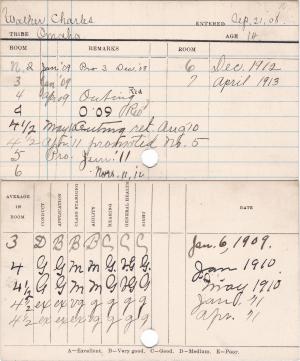 Walker, Charles ENTERED Sep. 21, 08
TRIBE Omaha AGE 14
ROOM REMARKS ROOM
N.2 Jan '09 Pro 3 Dec. '08 6 Dec. 1912
3 Jan '09 7 April 1913
4 Apr 09 Outing
4 O '09
4 1/2 May 10 Outing ret Aug 10
4 1/2 Apr. 11 promoted No. 5
5 Pro. Jun '11
6 Nov. 11, 12
AVERAGE IN ROOM CONDUCT APPLICATION CLASS STANDING ABILITY HEARING GENERAL HEALTH SIGHT DATE
3 D B B B G G G Jan. 6, 1909.
4 G G m m G. VG G. Jan 1910
4 1/2 G G m m G VG G. May 1910
4 1/2 ex ex vg g g g g Jan. 11
4 1/2 ex ex vg g g g g Apr. 11
A—Excellent. B—Very good. C—Good. D—Medium. E—Poor.